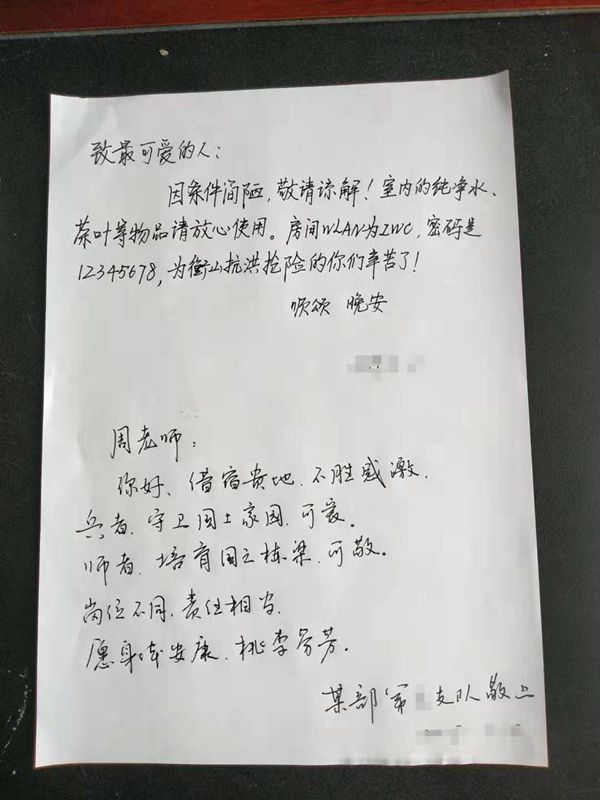 致最可爱的人:
因条件简陋,敬请谅解!室内的纯净水、
茶叶等物品请放心使用。房间WLAN为ZWC,密码是
12345678,为衡山抗洪抢险的你们辛苦了!
顺颂 晚安
周老师:
你好、借宿贵地.不胜感激.
兵者.守卫国土家园.可爱。
师者.培育国之栋梁.可敬。
岗位不同.责任相当.
愿身体安康.桃李芬芳.
某部第 支队敬上